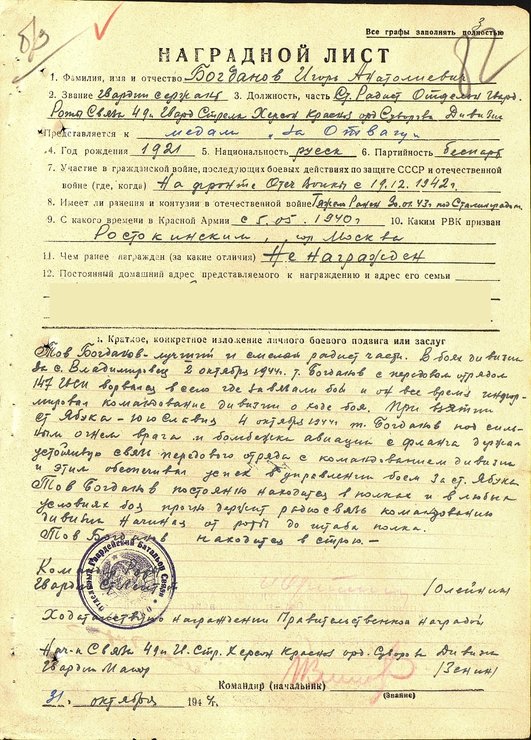 3
Все графы заполнять полностью
б/э
82
НАГРАДНОЙ ЛИСТ
1. Фамилия, имя и отчество Богданов Игорь Анатолиевич
2. Звание гвардии сержант 3. Должность, часть Ст. Радист Отдельн Гвард.
Роты Связи 49й Гвард Стрелк Херсон Красноз орд Суворова Дивизии
Представляется к медали „За Отвагу"
4. Год рождения 1921 5. Национальность русск 6. Партийность беспарт
7. Участие в гражданской войне, последующих боевых действиях по защите СССР и отечественной
войне (где, когда) На фронте Отеч Войны с 19.12.1942г.
8. Имеет ли ранения и контузии в отечественной войне Тяжело Ранен 30.01.43г. под Сталинградом
9. С какого времени в Красной Армии с 5.05.1940г. 10. Каким РВК призван
Ростокинским, гор Москва
11. Чем ранее награжден (за какие отличия) Не Награжден
12. Постоянный домашний адрес представляемого к награждению и адрес его семьи
1. Краткое, конкретное изложение личного боевого подвига или заслуг
Тов Богданов - лучший и смелый радист части. В боях дивизии
за с. Владимировец 2 октября 1944г. т. Богданов с передовым отрядом
147 ворвался в село где завязали бой и он все время инфор-
мировал командование дивизии о ходе боя. При взятии
ст Ябука - Югославия 4 октября 1944г. т. Богданов под силь-
ным огнем врага и бомбежки авиации с фланга держал
устойчивую связь передового отряда с командованием дивизии
и этим обеспечивал успех в управлении боем за ст. Ябука
Тов Богданов постоянно находится в полках и в любых
условиях боя прочно держит радиосвязь командованию
дивизии начиная от роты до штаба полка.
Тов Богданов находится в строю. -
Гвардии /Олейник/
ОТДЕЛЬНЫЙ ГВАРДЕЙСКИЙ БАТАЛЬОН СВЯЗИ
Ходатайствую о награждении Правительственной наградой
Нач-к Связи 49й Гв. Стр. Херсон Красноз орд. Суворова Дивизии
Гвардии Майор /Зенин/
Командир (начальник)
(Звание)
31. октября 1944г.